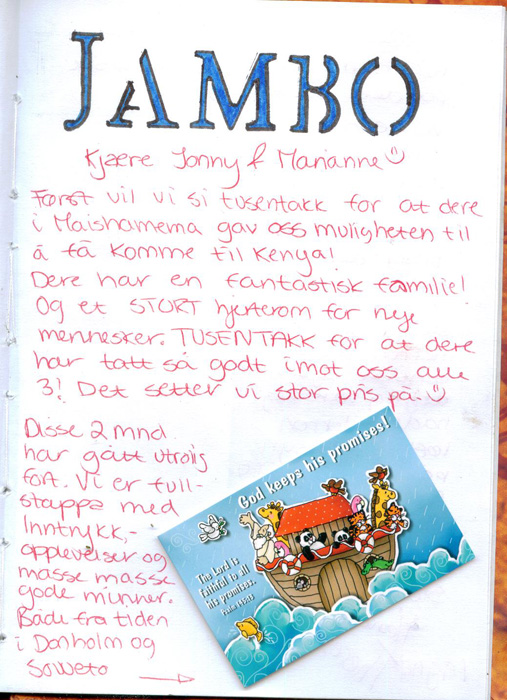 JAMBO
Kjære Jonny & Marianne
Først vil vi si tusentakk for at dere
i Maishamema gav oss muligheten til
å få komme til Kenya!
Dere har en fantastisk familie!
Og et STORT hjerterom for nye
mennesker. TUSENTAKK for at dere
har tatt så godt imot oss alle
3! Det setter vi stor pris på.
Disse 2 mnd
har gått utrolig
fort. Vi er full-
stappa med
Inntrykk,-
opplevelser og
masse masse
gode minner.
Både fra tiden
i Donholm og
Soweto
God keeps his promises!
The Lord is
faithful to all
his promises.
Psalm 145:13